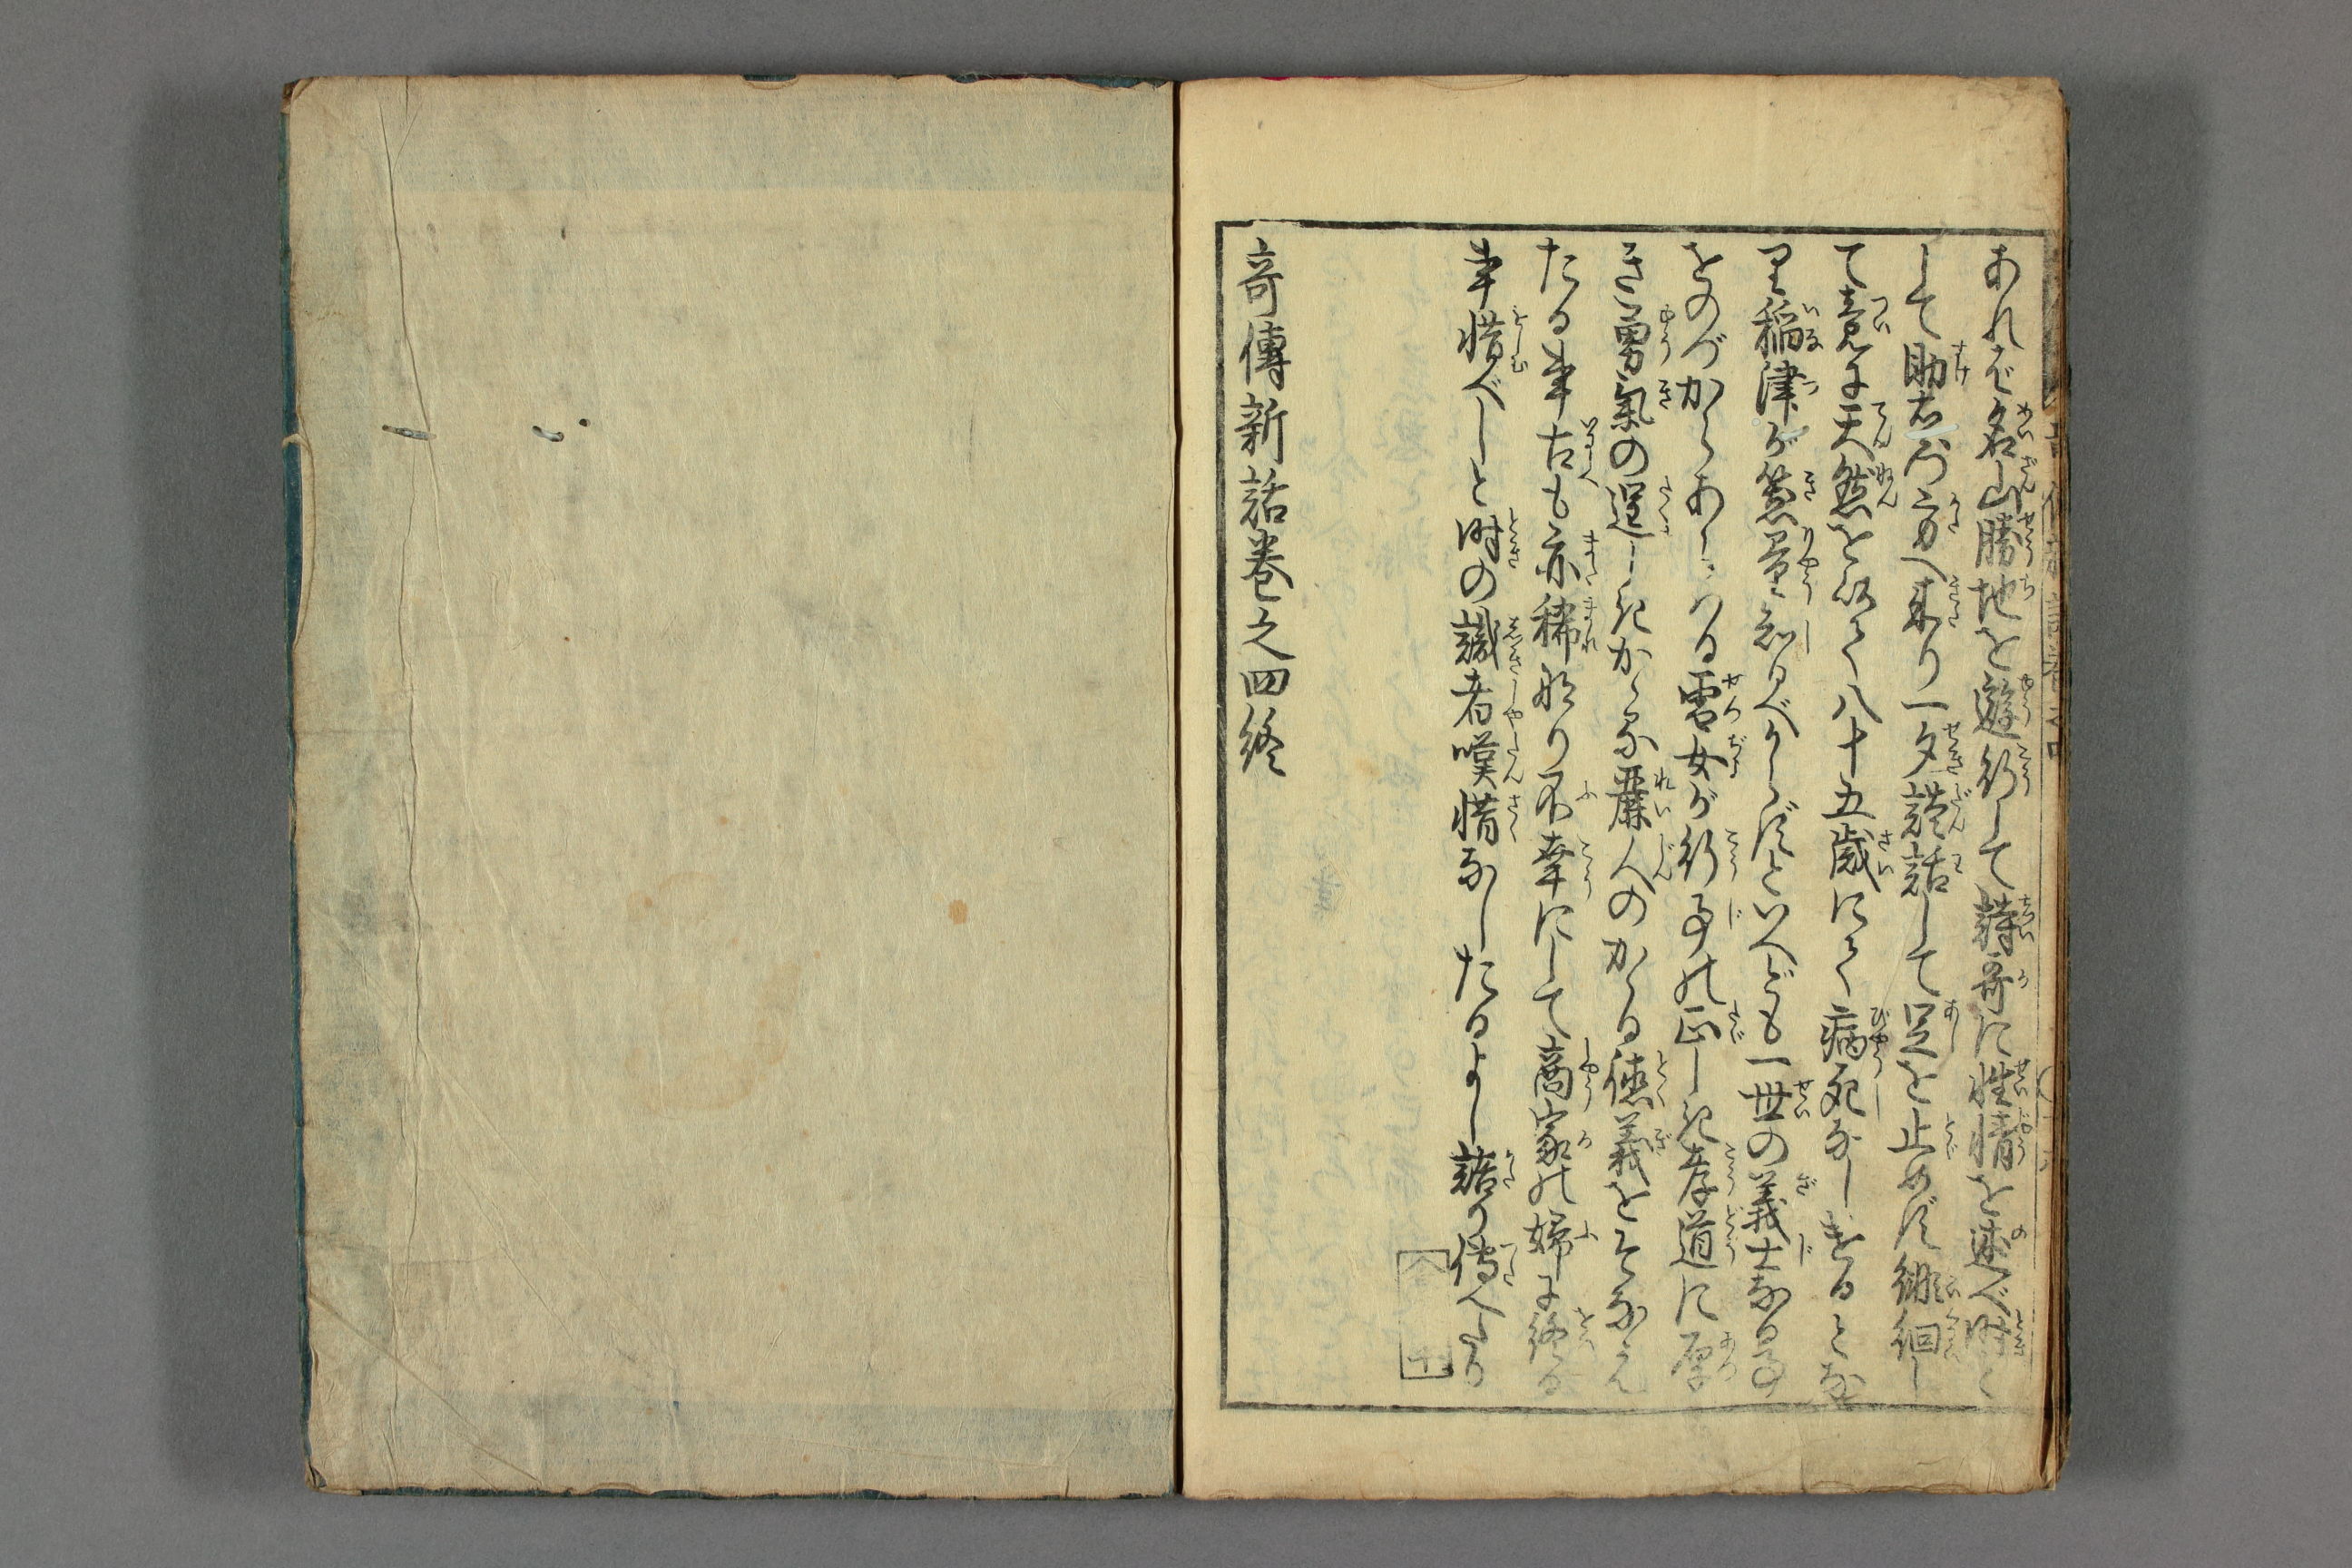 あれば名山勝地を遊行して詩哥に性情を述べ時と
して助右衛門方へ来り一夕談話して足を止めず徘徊し
て竟に天然を以て八十五歳にて病死なしけるとな
り稲津が器量知るべからずといへども一世の義士なる事
をのづからあらはる雪女が行事の正しき孝道に厚
き勇氣の逞しきかゝる麗人のかゝる徳義をそなえ
たる事古も亦稀なり不幸にして商家の婦に終る
事惜べしと時の識者嘆惜なしたるよし語り傳へたり
奇傳新話巻之四終
十